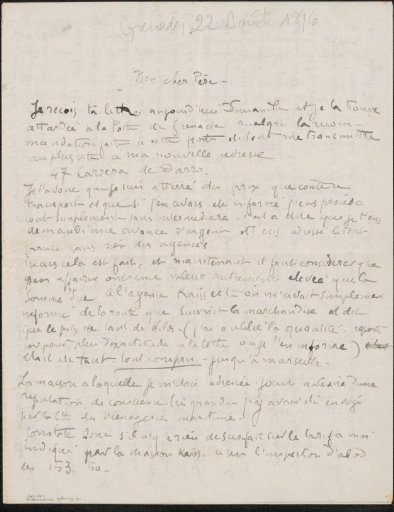 Grenade, 22 Août 1896
Mon cher Père -
Je reçois ta lettre aujourd'hui Dimanche et je la trouve
attardée à la Poste de Grenade malgré la recom-
mandation faite à cette poste de tout me transmettre
au plus vite à ma nouvelle adresse
47 Carrera de Darro.
Je t'avoue que je suis atterré du prix que coûte ce
transport et que si j'en avais été informé j'eus procédé
tout simplement sans intermédiaire. C'est à dire que je t'eus
demandé une avance d'argent et eus adressé le tout
sans rien des agences.
Mais cela est fait, et maintenant il faut considérer que
mes affaires ont une valeur autrement élevée que la
somme due. à l'agence on m'avait simplement
informé de la route que suivrait la marchandise et dit
que le prix de tant de kilos - (j'ai oublié la quantité.
pour plus d'exactitude à la lettre où je t'en informe)
était de tant tout compris - jusqu'à marseille.
La maison à laquelle je m'étais adressé jouit avérée d'une
réputation de conscience très grande j'y avais été envoyé
par la Cie des Messageries maritimes.
Constate donc s'il n'y a rien de surfait sur le tarif à moi
indiqué par la maison
les 153.20.